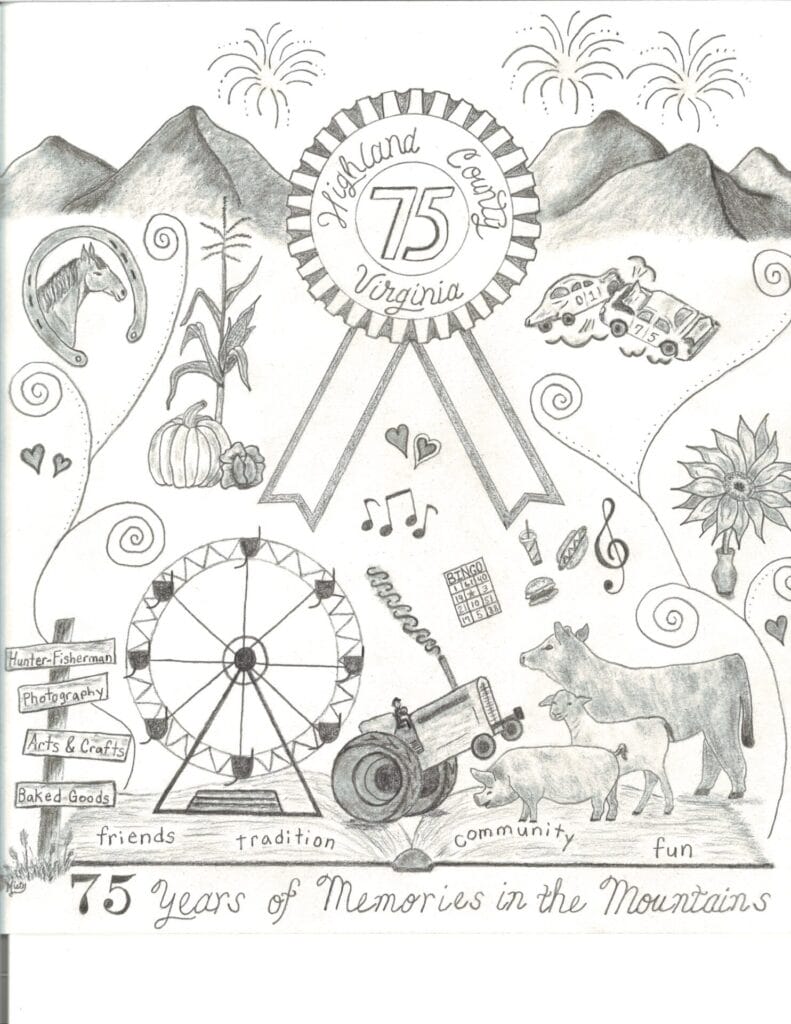 Highland County
75
Virginia
011
75
BINGO
Hunter-Fisherman
Photography
Arts & Crafts
Baked Goods
friends tradition community fun
Misty
75 Years of Memories in the Mountains